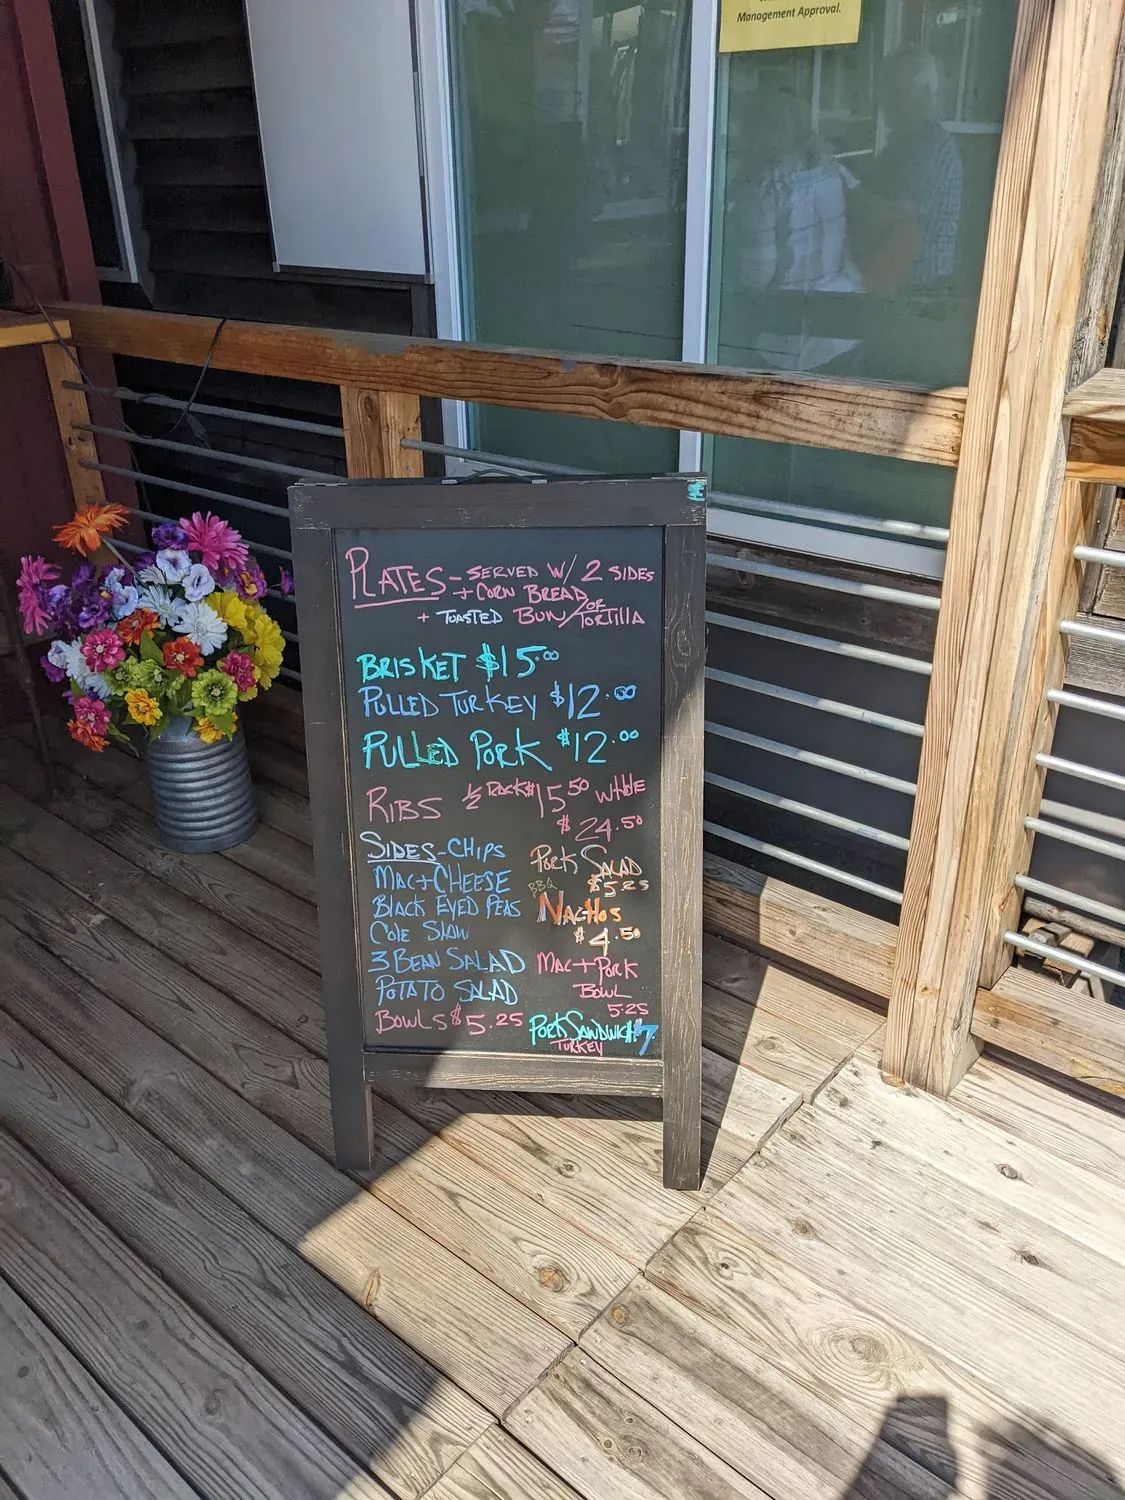 Management Approval.
PLATES - SERVED W/ 2 SIDES
+ CORN BREAD
+ TOASTED BUN/OR TORTILLA
BRISKET $15.00
PULLED TURKEY $12.00
PULLED PORK $12.00
RIBS 1/2 RACK $15.50 WHOLE
$24.50
SIDES - CHIPS
MAC + CHEESE
BLACK EYED PEAS
COLE SLAW
3 BEAN SALAD
POTATO SALAD
BOWLS $5.25
PORK SALAD
$5.25
BBQ
NACHOS
$4.50
MAC + PORK
BOWL
5.25
PORK SANDWICH $7
TURKEY